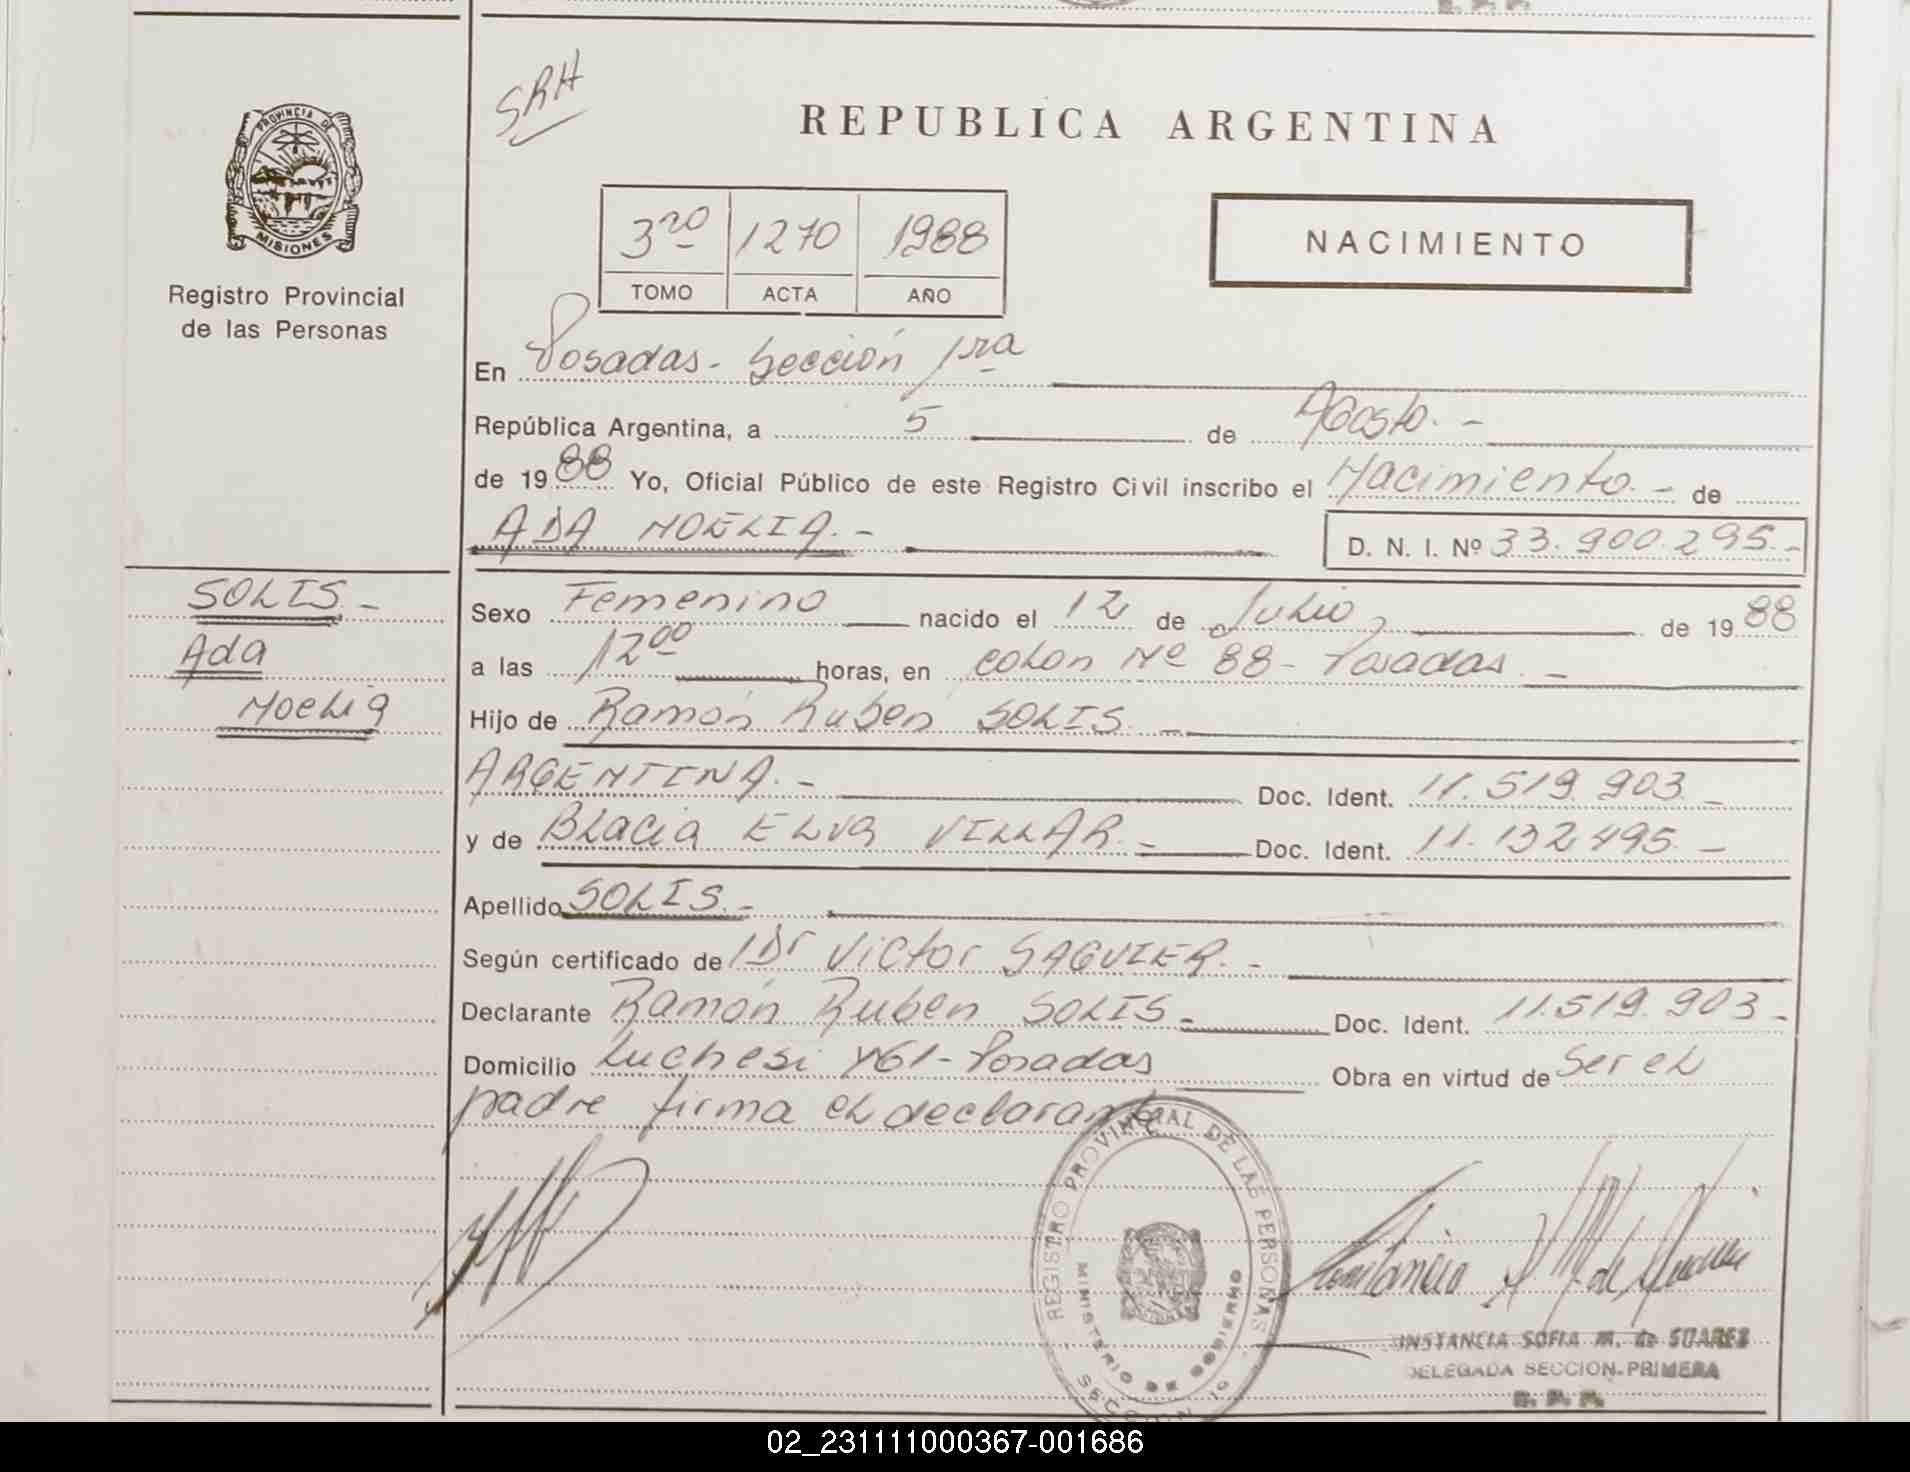 SRH
PROVINCIA DE
MISIONES
Registro Provincial
de las Personas
REPUBLICA ARGENTINA
3ro 1270 1988
TOMO ACTA AÑO
NACIMIENTO
En Posadas - Sección 1ra
República Argentina, a 5 de Agosto. -
de 1988 Yo, Oficial Público de este Registro Civil inscribo el Nacimiento. - de
ADA NOELIA. -
D. N. I. Nº 33.900.295. -
SOLIS. -
Ada
Noelia
Sexo Femenino nacido el 12 de Julio, de 1988
a las 12 00 horas, en Colon Nº 88 - Posadas. -
Hijo de Ramón Ruben SOLIS. -
ARGENTINA. - Doc. Ident. 11.519.903. -
y de Blacia ELVA VILLAR. - Doc. Ident. 11.132.495. -
Apellido SOLIS. -
Según certificado de Dr Victor SAGUIER. -
Declarante Ramón Ruben SOLIS - Doc. Ident. 11.519.903 -
Domicilio Luchesi 461 - Posadas Obra en virtud de Ser el
padre firma el declarante
REGISTRO PROVINCIAL DE LAS PERSONAS
MINISTERIO DE GOBIERNO
SECCION 1a
NSTANCIA SOFIA M. de SUAREZ
DELEGADA SECCION PRIMERA
R. P. P.
02_231111000367-001686